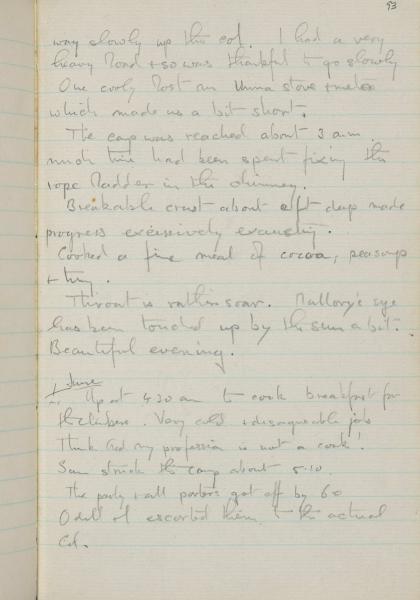 93
way slowly up the col. I had a very
heavy load + so was thankful to go slowly
One cooly lost an Unna stove + meta
which made us a bit short.
The camp was reached about 3 a.m.
much time had been spent fixing the
rope ladder in the chimney.
Breakable crust about a ft deep made
progress excessively exausting.
Cooked a fine meal of cocoa, peasoup
+ tong.
Throat is rather soar. Mallory's eye
has been touched up by the sun a bit.
Beautiful evening.
1 June
Up at 4.30 am to cook breakfast for
the climbers. Very cold + disagreeable job
Think God my profession is not a cook!
Sun struck the camp about 5.10.
The party + all porters got off by 6.0
Odell & I escorted them to the actual
Col.